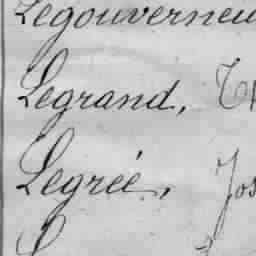 Legouverneu
Legrand,
Legrée, Jos